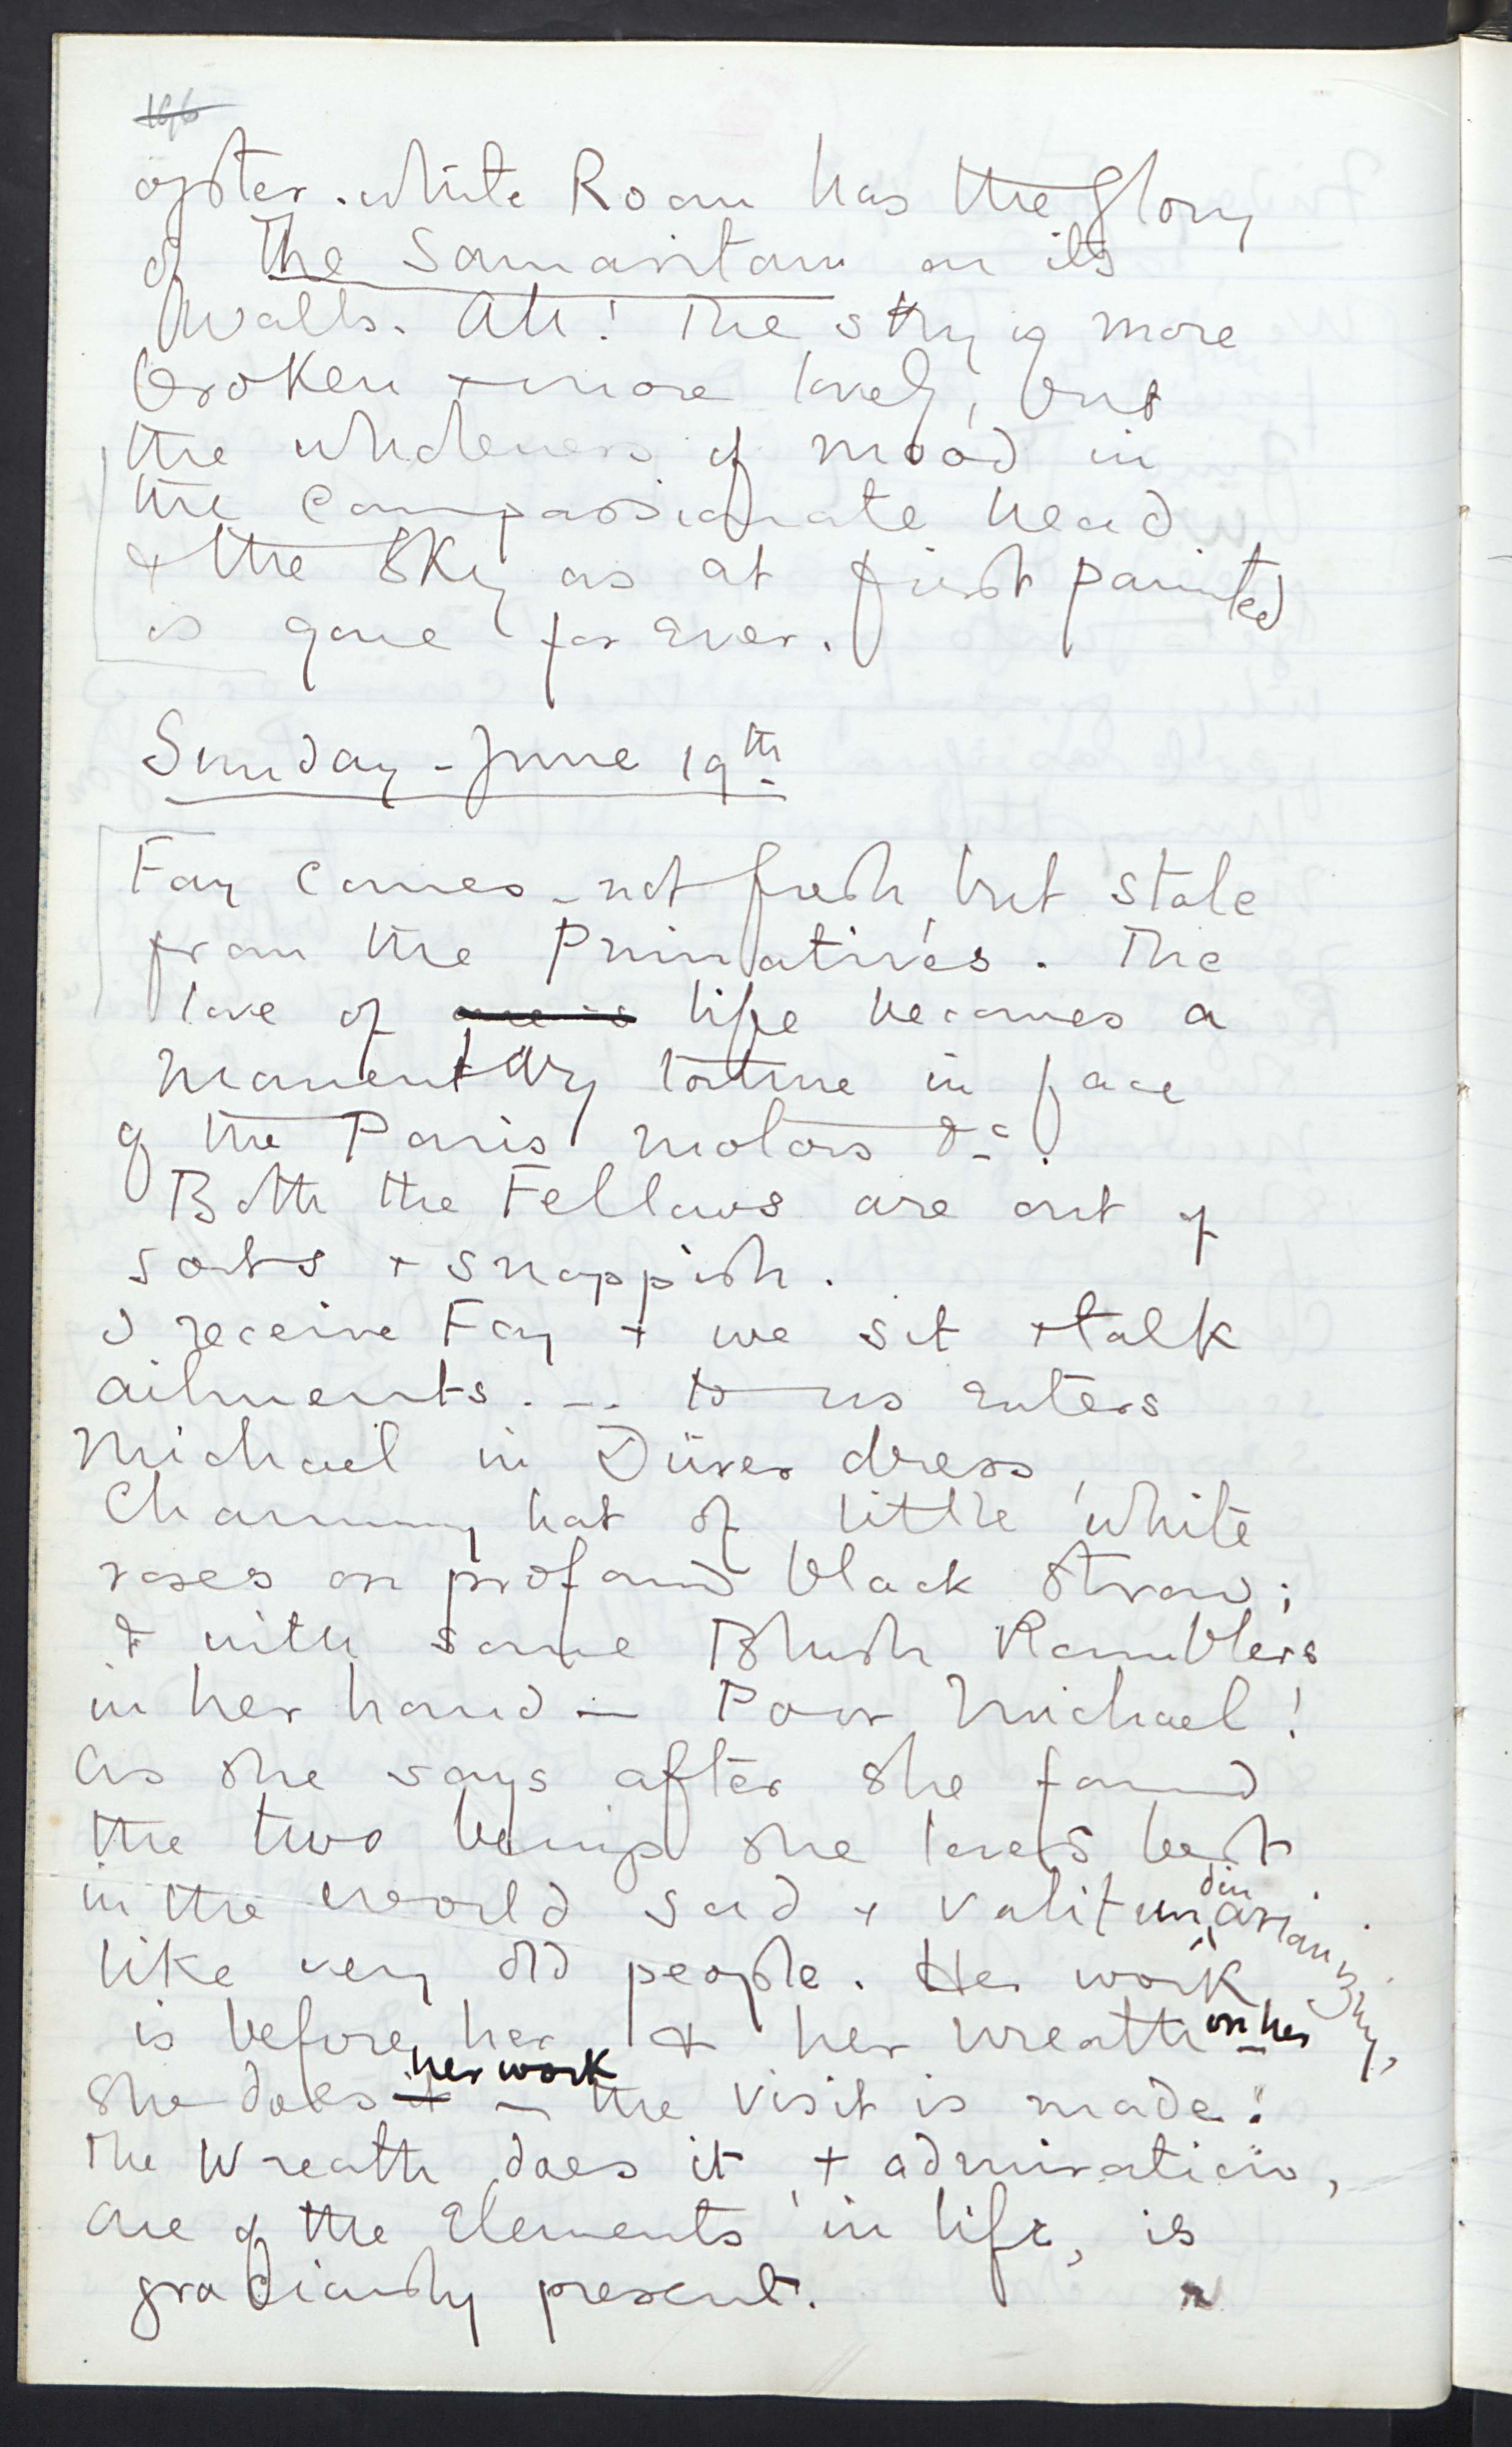 196
oyster-white Room has the glory
of The Samaritan on its
walls. Ah! The sky is more
broken + more lovely, but
the wholeness of mood in
the compassionate head
& the sky as at first painted
is gone for ever.
Sunday - June 19th
Fay comes - not fresh, but stale
from the Primatives. The
love of life becomes a
momentary torture in face
of the Paris motors &c.
Both the Fellows are out of
sorts + snappish.
I receive Fay + we sit + talk
ailments. ... to us enters
Michael in Dürer dress,
Charming hat of little white
roses on profound black straw;
& with some Blush Ramblers
in her hand — Poor Michael!
As she says after she found
the two beings she loves best
in the world sad + valitudinarianishly,
like very old people. Her work
is before her & her wreath on her
She does it her work — the visit is made:
The Wreath does it, + admiration,
one of the Elements in life, is
graciously present.